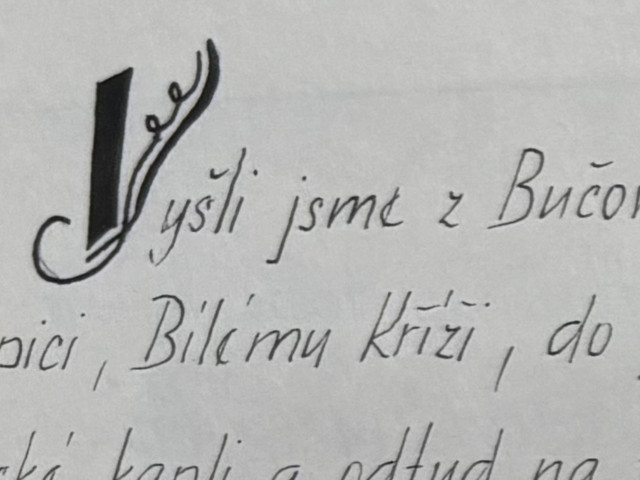 Vyšli jsme z Bučov
pici, Bílému Kříži, do
ská kapli a odtud na